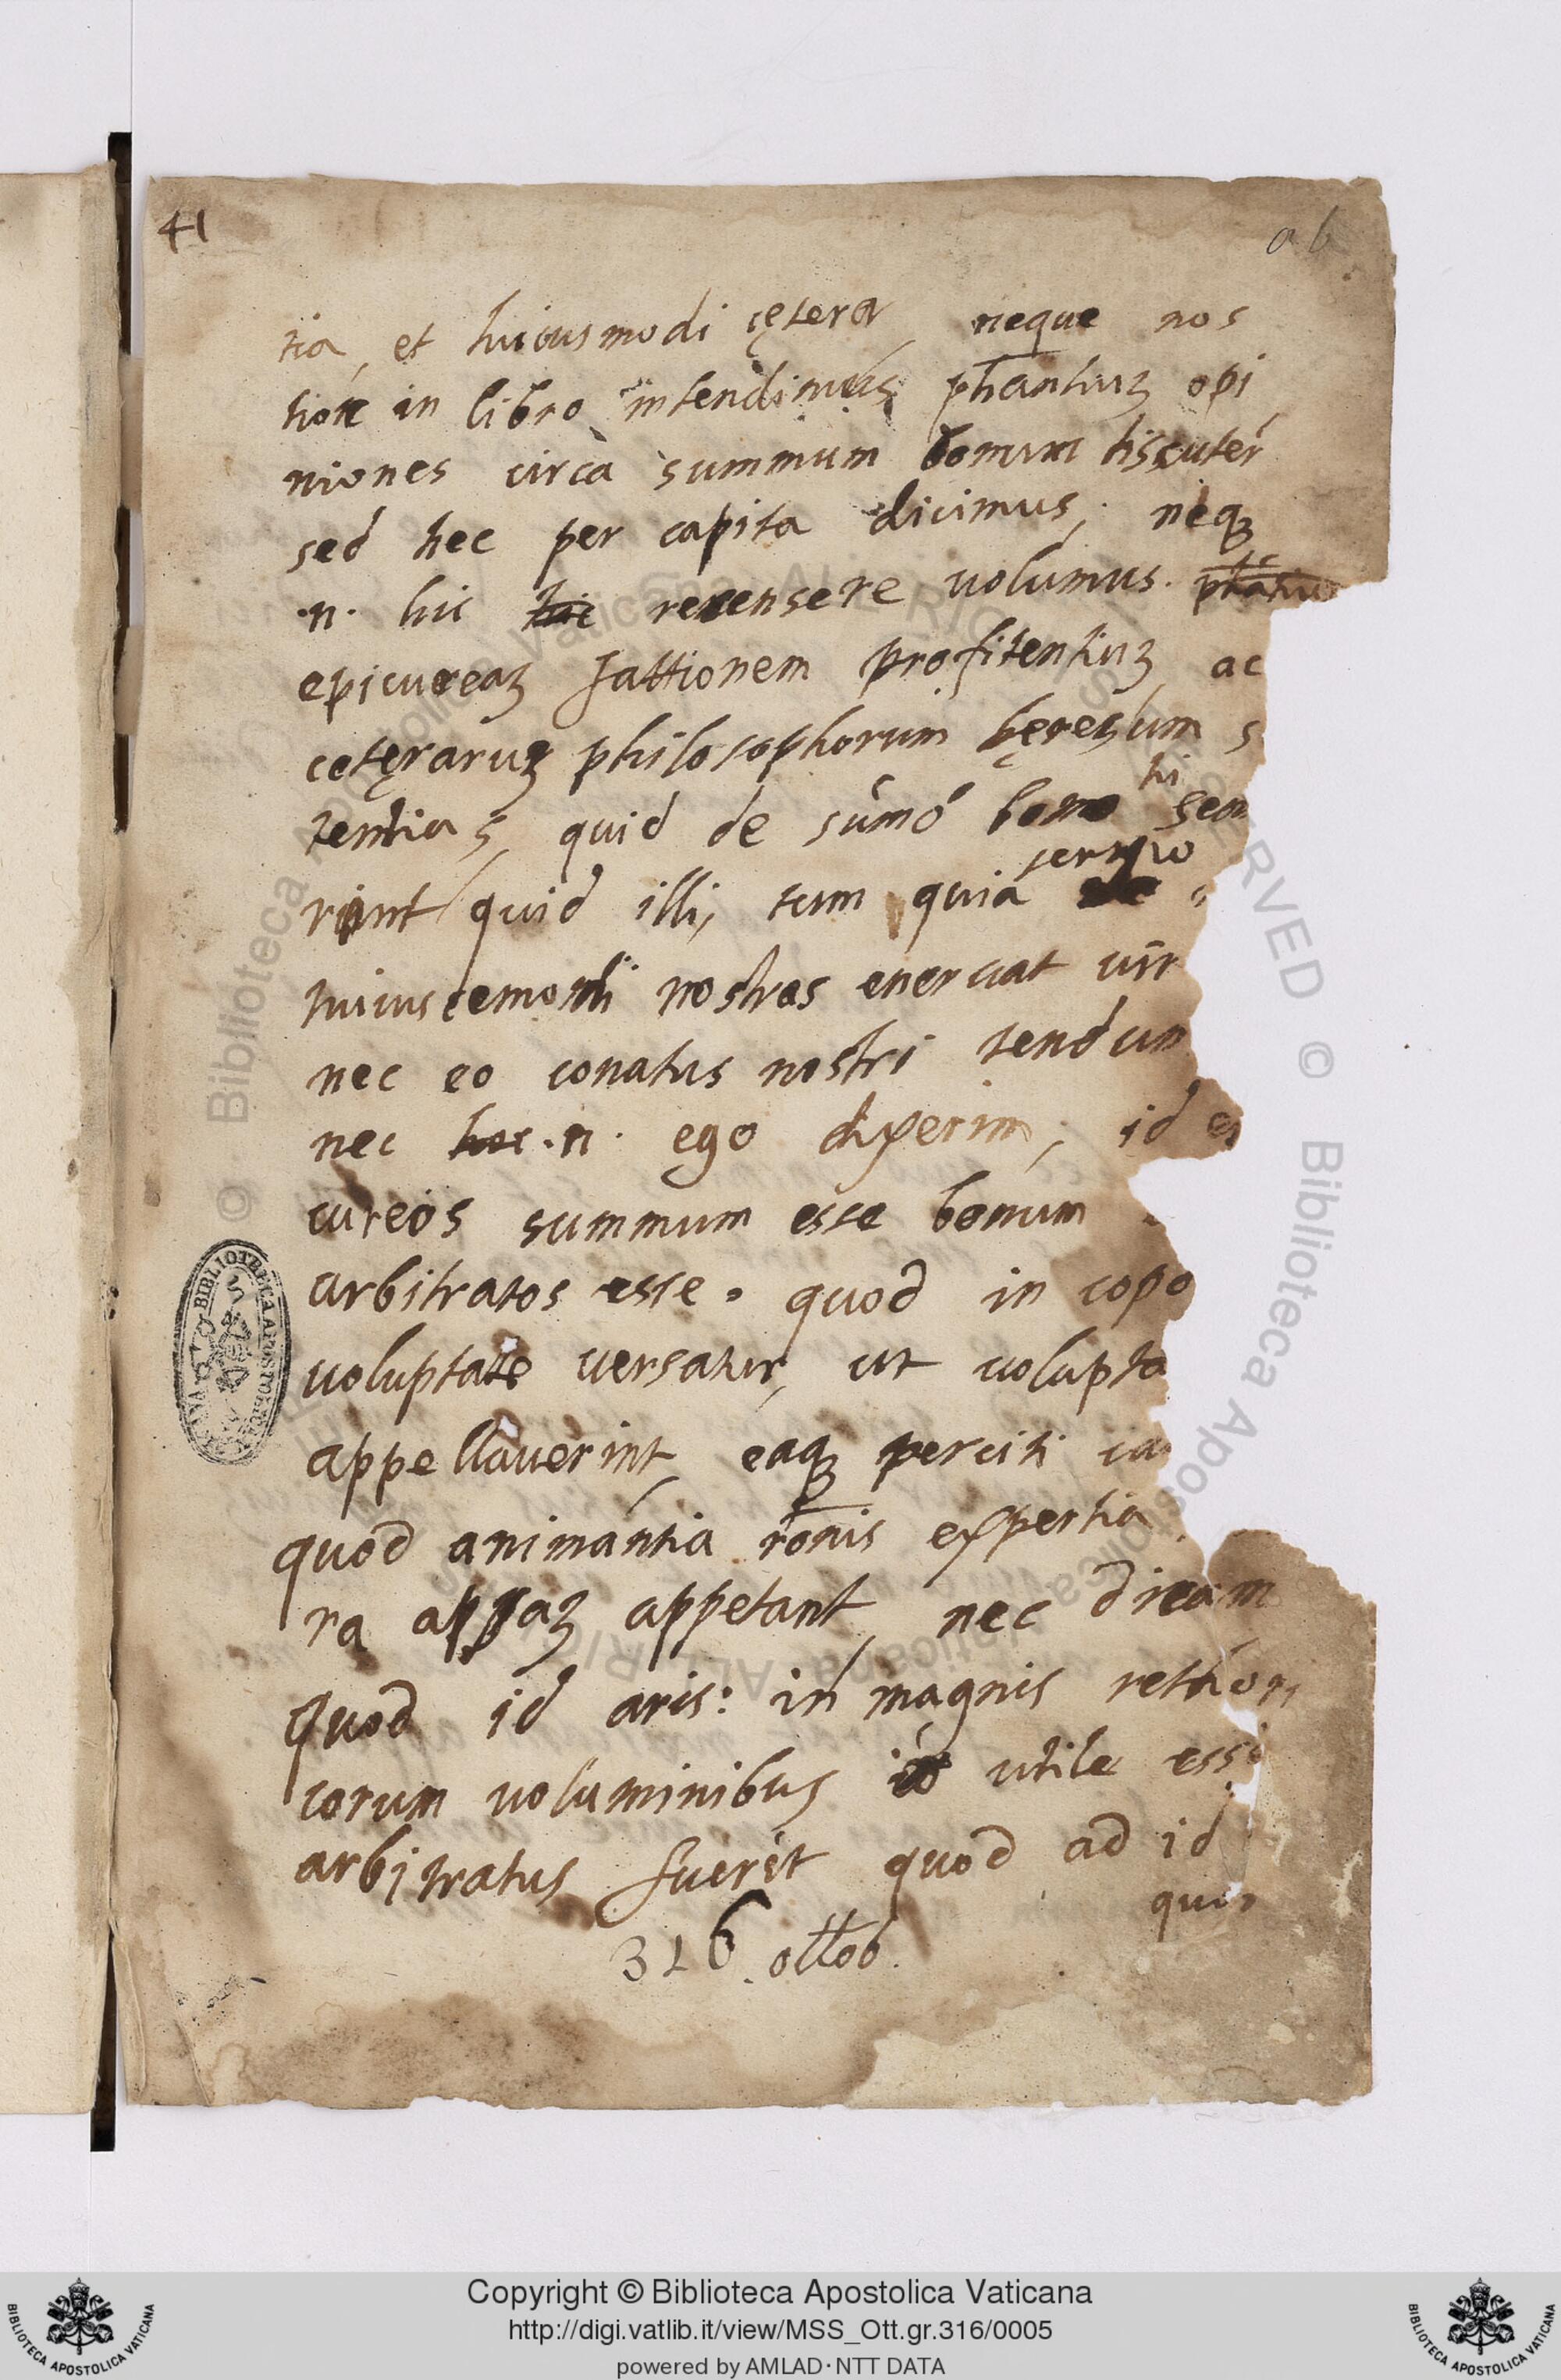 41
ab
tia, et huiusmodi cętera, neque nos
in libro intendimus phantiuȝ opi
niones circà summum bonum discuter
sed hec per capita dicimus, neqȝ
.n. hic hic recensere uolumus.
epicureaȝ fattionem profitentiuȝ, ac
cetęraruȝ philosophorum hęresium s
tentias, quid de sumó bono hi sen
rint quid illi, tum quia sermo
huiuscemodi nostras eneruat uir
nec eo conatus nostri tendun
nec hoc .n. ego dixerim, id e
cureos summum esse bonum
arbitratos esse. quod in copo
uoluptate uersatur, ut uolupta
appellauerint, eaqȝ perciti ca
quod animantia ronis expertia
ra appetant, nec dicam
quod id aris: in magnis rethori
corum uoluminibus utile esse
arbitratus fuerit quod ad id
quo
316. ottob.
BIBLIOTECA APOSTOLICA VATICANA
© Biblioteca Apostolica Vaticana ALL RIGHTS RESERVED
Copyright © Biblioteca Apostolica Vaticana
http://digi.vatlib.it/view/MSS_Ott.gr.316/0005
powered by AMLAD·NTT DATA
BIBLIOTECA APOSTOLICA VATICANA
BIBLIOTECA APOSTOLICA VATICANA